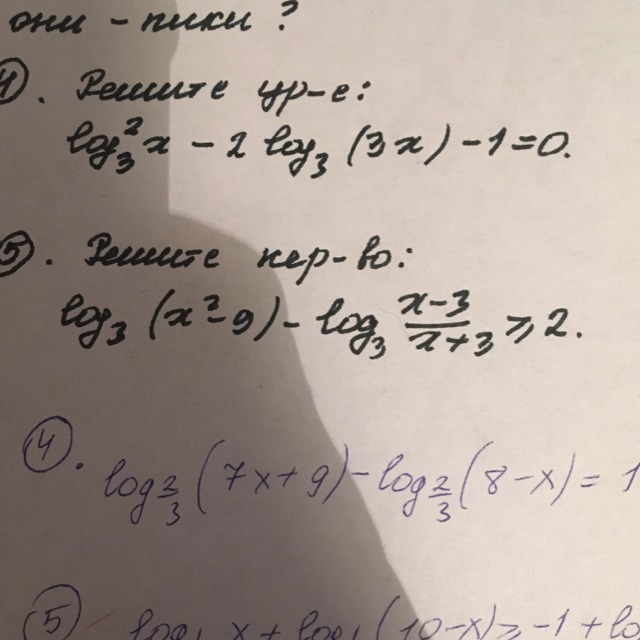 они - пики ?
4. Решите ур-е:
log₃²x - 2 log₃ (3x) - 1 = 0.
5. Решите нер-во:
log₃ (x² - 9) - log₃ (x-3)/(x+3) ≥ 2.
4. log_{2/3} (7x+9) - log_{2/3} (8-x) = 1
5. x + (10-x) ≥ -1 +